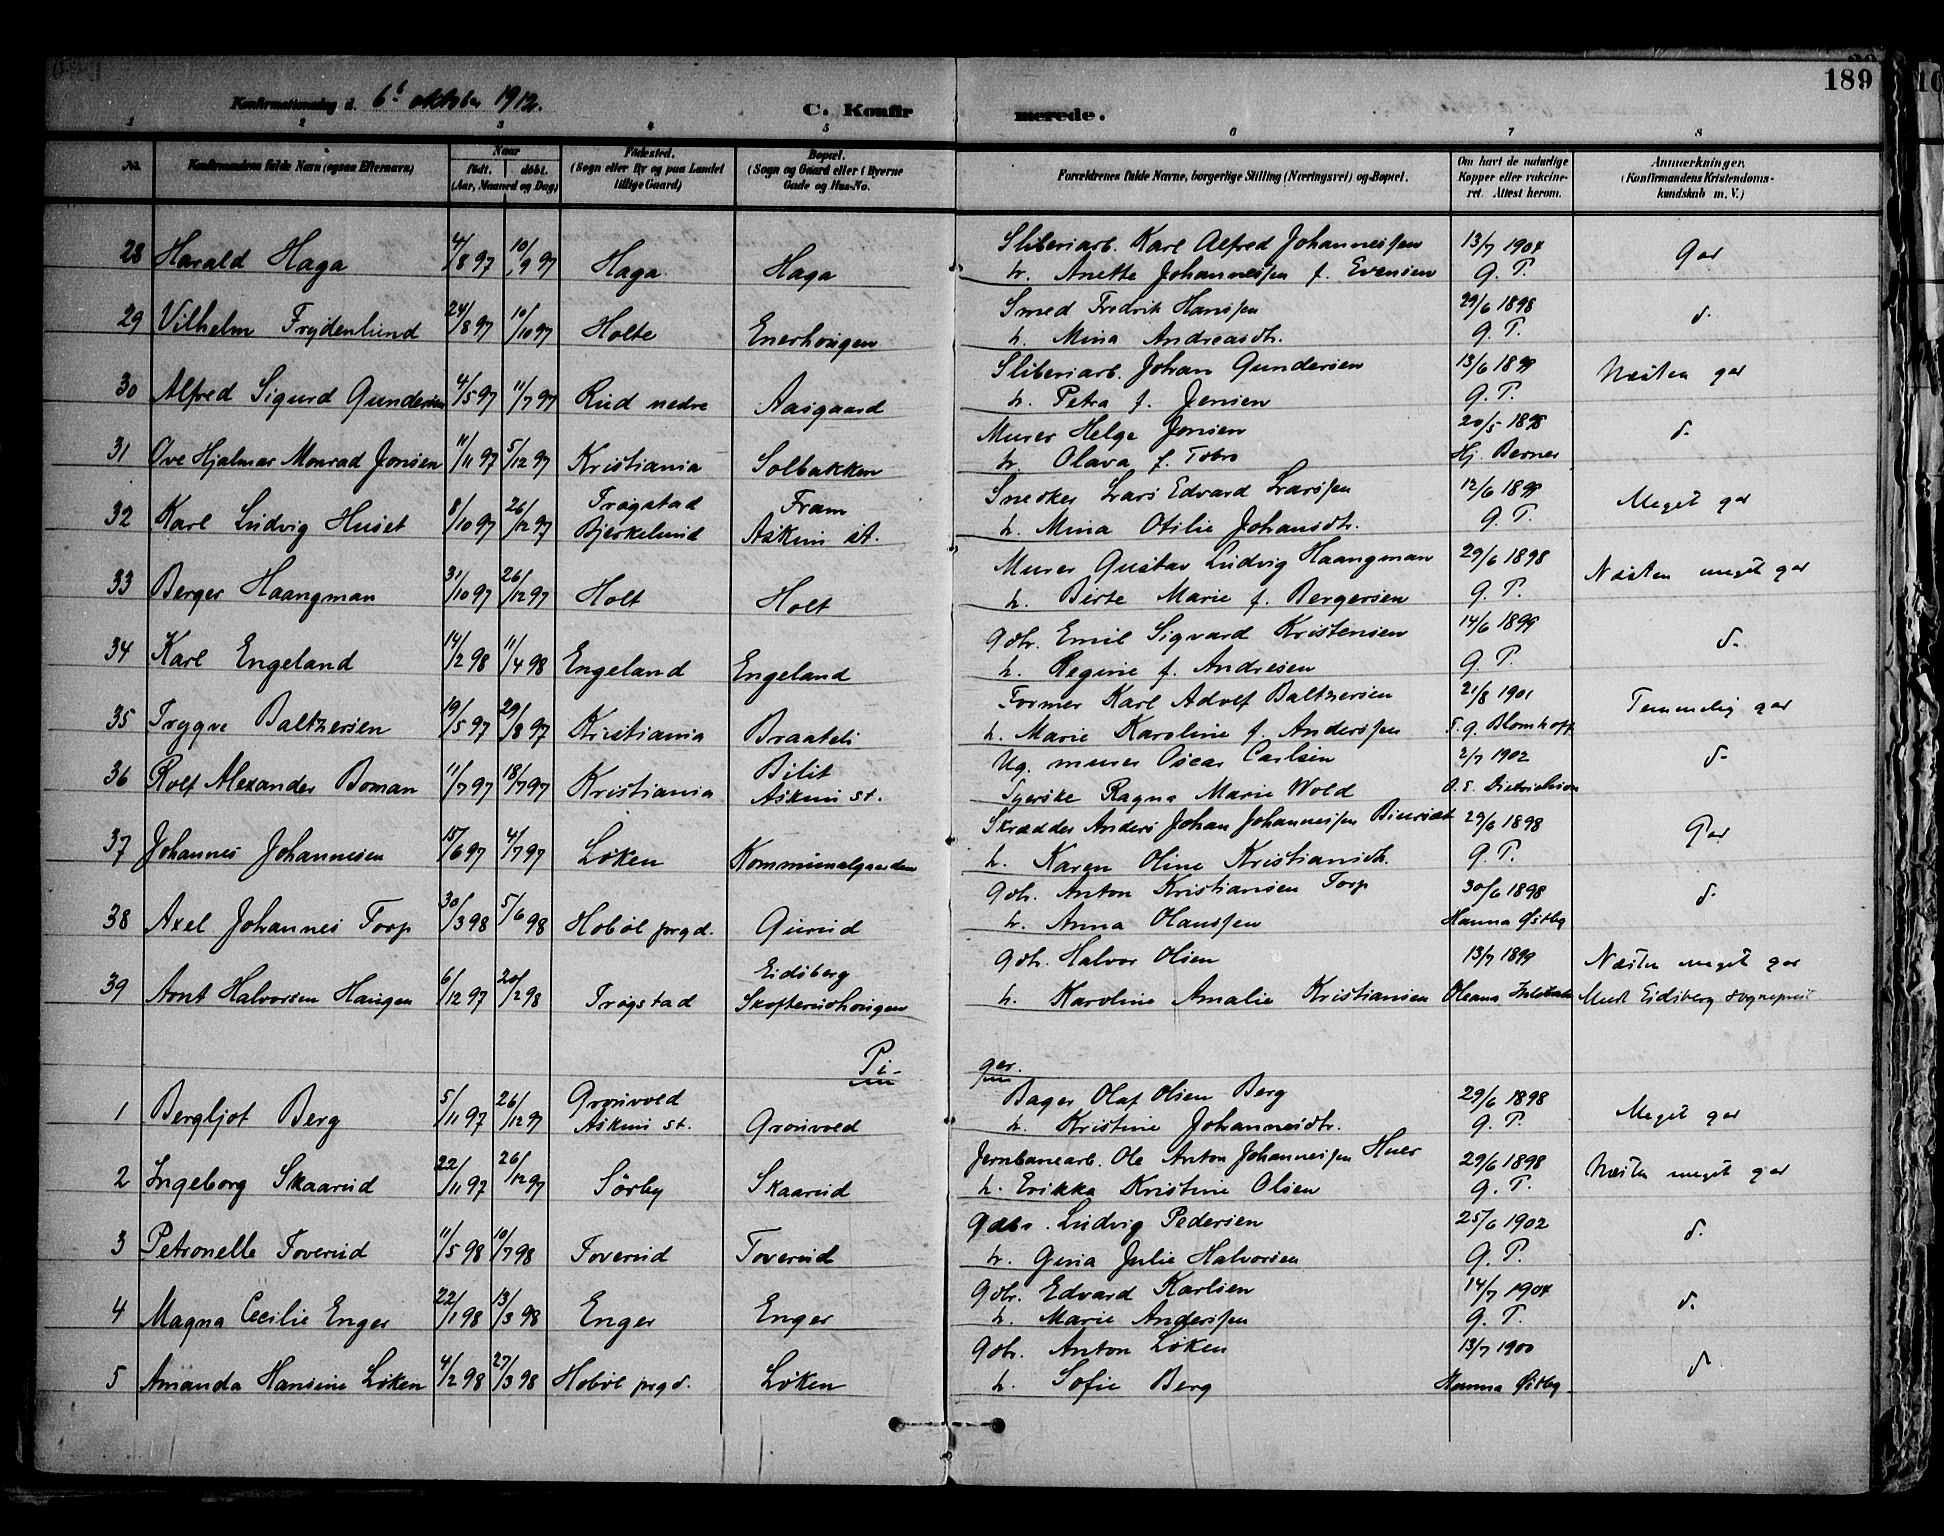 189
Konfirmationsdag d. 6t oktober 1912. C. Konfirmerede.
1 2 3 4 5 6 7 8
No. Konfirmandens fulde Navn (ogsaa Efternavn) Naar født. døbt. (Aar, Maaned og Dag) Fødested. (Sogn eller By og paa Landet tillige Gaard) Bopæl. (Sogn og Gaard eller i Byerne Gade og Hus-No. Forældrenes fulde Navne, borgerlige Stilling (Næringsvei) og Bopæl. Om havt de naturlige Kopper eller vakcineret. Attest herom. Anmærkninger. (Konfirmandens Kristendomskundskab m. V.)
28 Harald Haga 4/8 97 10/9 97 Haga Haga Sliberiarb. Karl Alfred Johannessen 13/7 1904 Gor
h. Anette Johannessen f. Evensen G. T.
29 Vilhelm Frydenlund 24/8 97 10/10 97 Holte Enerhougen Smed Fredrik Hanssen 29/6 1898 d.
h. Mina Andreasdtr. G. T.
30 Alfred Sigurd Gundersen 4/5 97 11/7 97 Rud nedre Aasgaard Sliberiarb. Johan Gundersen 13/6 1899 Næsten gor
h. Petra f. Jensen G. T.
31 Ove Hjalmar Monrad Jonsen 11/11 97 5/12 97 Kristiania Solbakken Murer Helge Jonsen 20/5 1898 d.
h. Olava f. Hj. Berner
32 Karl Ludvig Huset 8/10 97 26/12 97 Trøgstad Bjerkelund Fram Askim st. Snedker Lars Edvard Larssen 12/6 1899 Meget gor
h. Mina Otilie Johansdtr. G. T.
33 Berger Haangman 31/10 97 26/12 97 Holt Holt Murer Gustav Ludvig Haangman 29/6 1898 Næsten meget gor
h. Birte Marie f. Bergersen G. T.
34 Karl Engeland 14/2 98 11/4 98 Engeland Engeland Gbr. Emil Sigvard Kristensen 14/6 1899 d.
h. Regine f. Andresen G. T.
35 Trygve Baltzersen 19/5 97 29/8 97 Kristiania Braateli Former Karl Adolf Baltzersen 21/8 1901 Temmelig gor
h. Marie Karoline f. Anderssen T. G. Blomhoff
36 Rolf Alexander Boman 11/7 97 18/7 97 Kristiania Bilit Askim st. Ug. murer Oscar Carlsen 2/7 1902 d.
Tyerske Ragna Marie Wold O. S. Dietrichson
37 Johannes Johannesen 15/6 97 4/7 97 Løken Kommunelgaarden Skrædder Anders Johan Johannessen 29/6 1898 Gor
h. Karen Oline Kristiansdt. G. T.
38 Axel Johannes Torp 30/3 98 5/6 98 Hobøl prgd. Gurud Gbr. Anton Kristiansen Torp 30/6 1898 d.
h. Anna Olaussen Hanna Østby
39 Arnt Halvorsen Haugen 6/12 97 20/2 98 Trøgstad Eidsberg Skofterudhougen Gbr. Halvor Olsen 13/7 1899 Næsten meget gor
h. Karoline Amalie Kristiansen Oleana Meld. Eidsberg sogneprest
Piger.
1 Bergljot Berg 5/11 97 26/12 97 Grønvold Askim st. Grønvold Bager Olaf Olsen Berg 29/6 1898 Meget gor
h. Kristine Johannesdtr. G. T.
2 Ingeborg Skaarud 22/11 97 26/12 97 Sørby Skaarud Jernbanearb. Ole Anton Johannessen Huer 29/6 1898 Næsten meget gor
h. Erikka Kristine Olsen G. T.
3 Petronelle Toverud 11/5 98 10/7 98 Toverud Toverud Gdbr. Ludvig Pedersen 25/6 1902 d.
h. Gina Julie Halvorsen G. T.
4 Magna Cecilie Enger 22/1 98 13/3 98 Enger Enger Gbr. Edvard Karlsen 14/7 1904 d.
h. Marie Anderssen G. T.
5 Amanda Hansine Løken 4/2 98 27/3 98 Hobøl prgd. Løken Gbr. Anton Løken 13/7 1900 d
h. Sofie Berg Hanna Østby